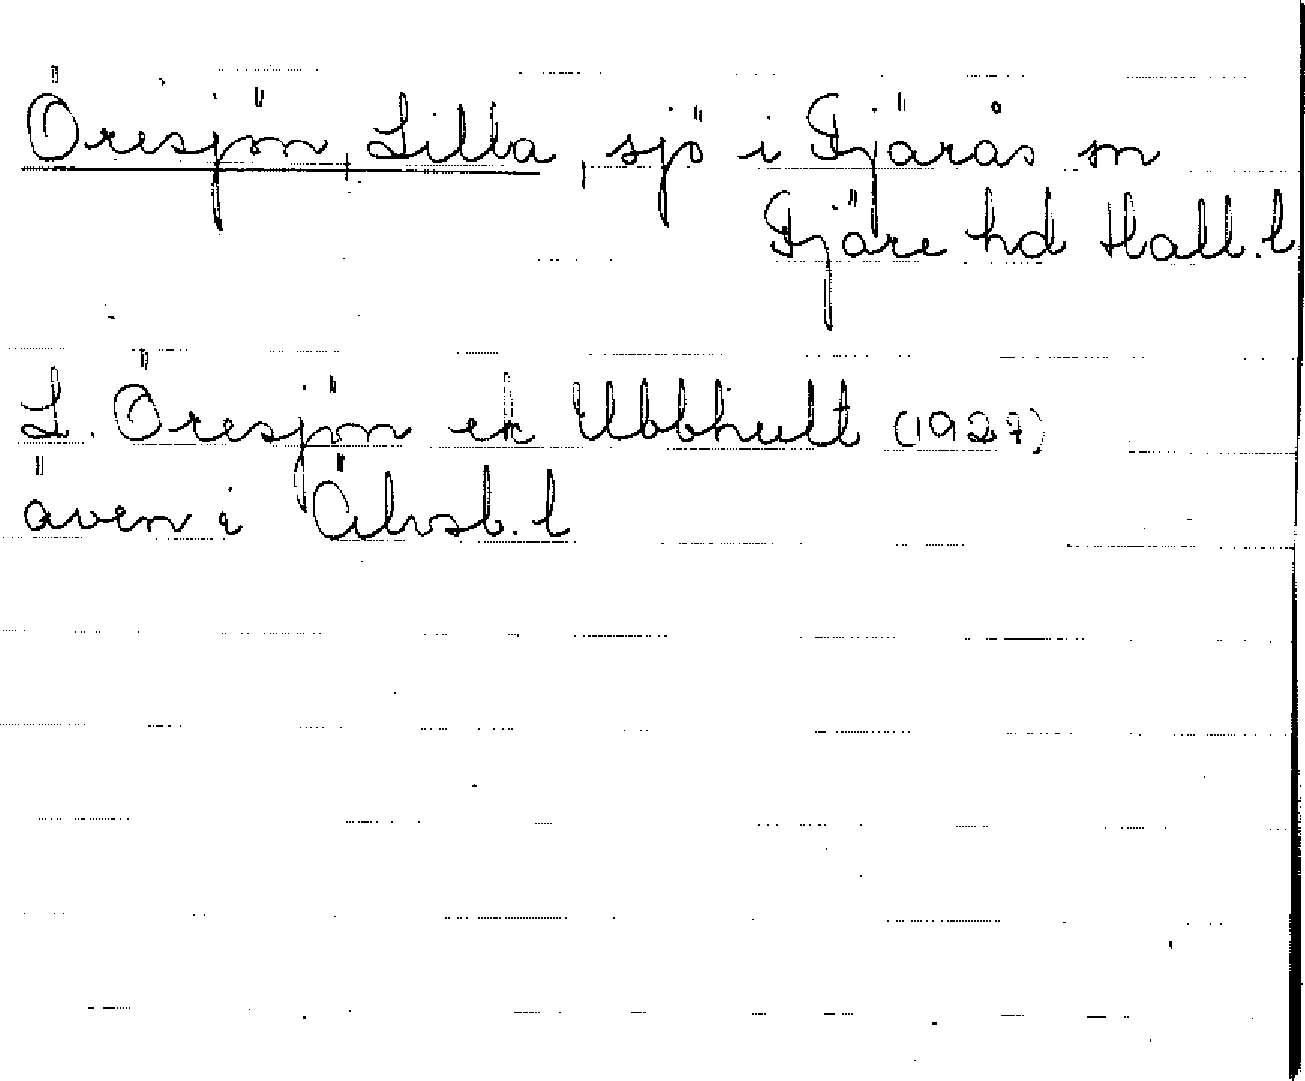 Öresjön, Lilla, sjö i Fjärås sn
Fjäre hd Hall. l
L. Öresjön ek Ubbhult (1927)
även i Älvsb. l